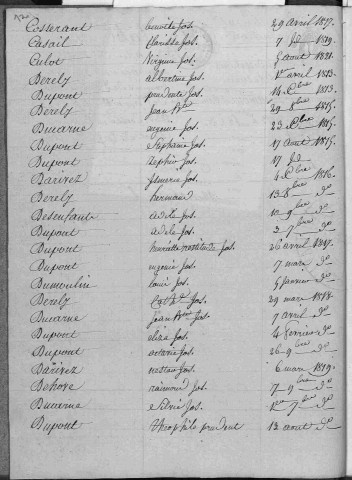 Cosserant Jos. 29 avril 1817.
Casail Clarisse Jos. 7 d° 1819.
Culot Virginie Jos. 5 aout 1821.
Berely albertine Jos. 1er avril 1813.
Dupont prudente Jos. 14 Xbre 1813.
Berely Jean Bte 29 8bre 1815.
Ducarne eugenie Jos. 23 Xbre 1815.
Dupont Stephanie Jos. 17 aout 1815.
Dupont Zephir Jos. 17 d°
Barivez Jos. 4 Xbre 1816.
Berely hermand 13 8bre d°
Desenfants adele Jos. 10 9bre d°
Dupont adele Jos. 3 7bre d°
Dupont henriette Jos. 26 avril 1817.
Dupont eugenie Jos. 7 mars d°
Dumoulin louis Jos. 5 janvier d°
Berely Cath. Jos. 29 mars 1818.
Ducarne Jean Bte Jos. 7 avril d°
Dupont elisa Jos. 4 fevrier d°
Dupont octavie Jos. 26 9bre d°
Barivez nestor Jos. 6 mars 1819.
Dehove raimond Jos. 7 9bre d°
Ducarne Silvie Jos. 1er 7bre d°
Dupont theophile prudent 13 aout d°